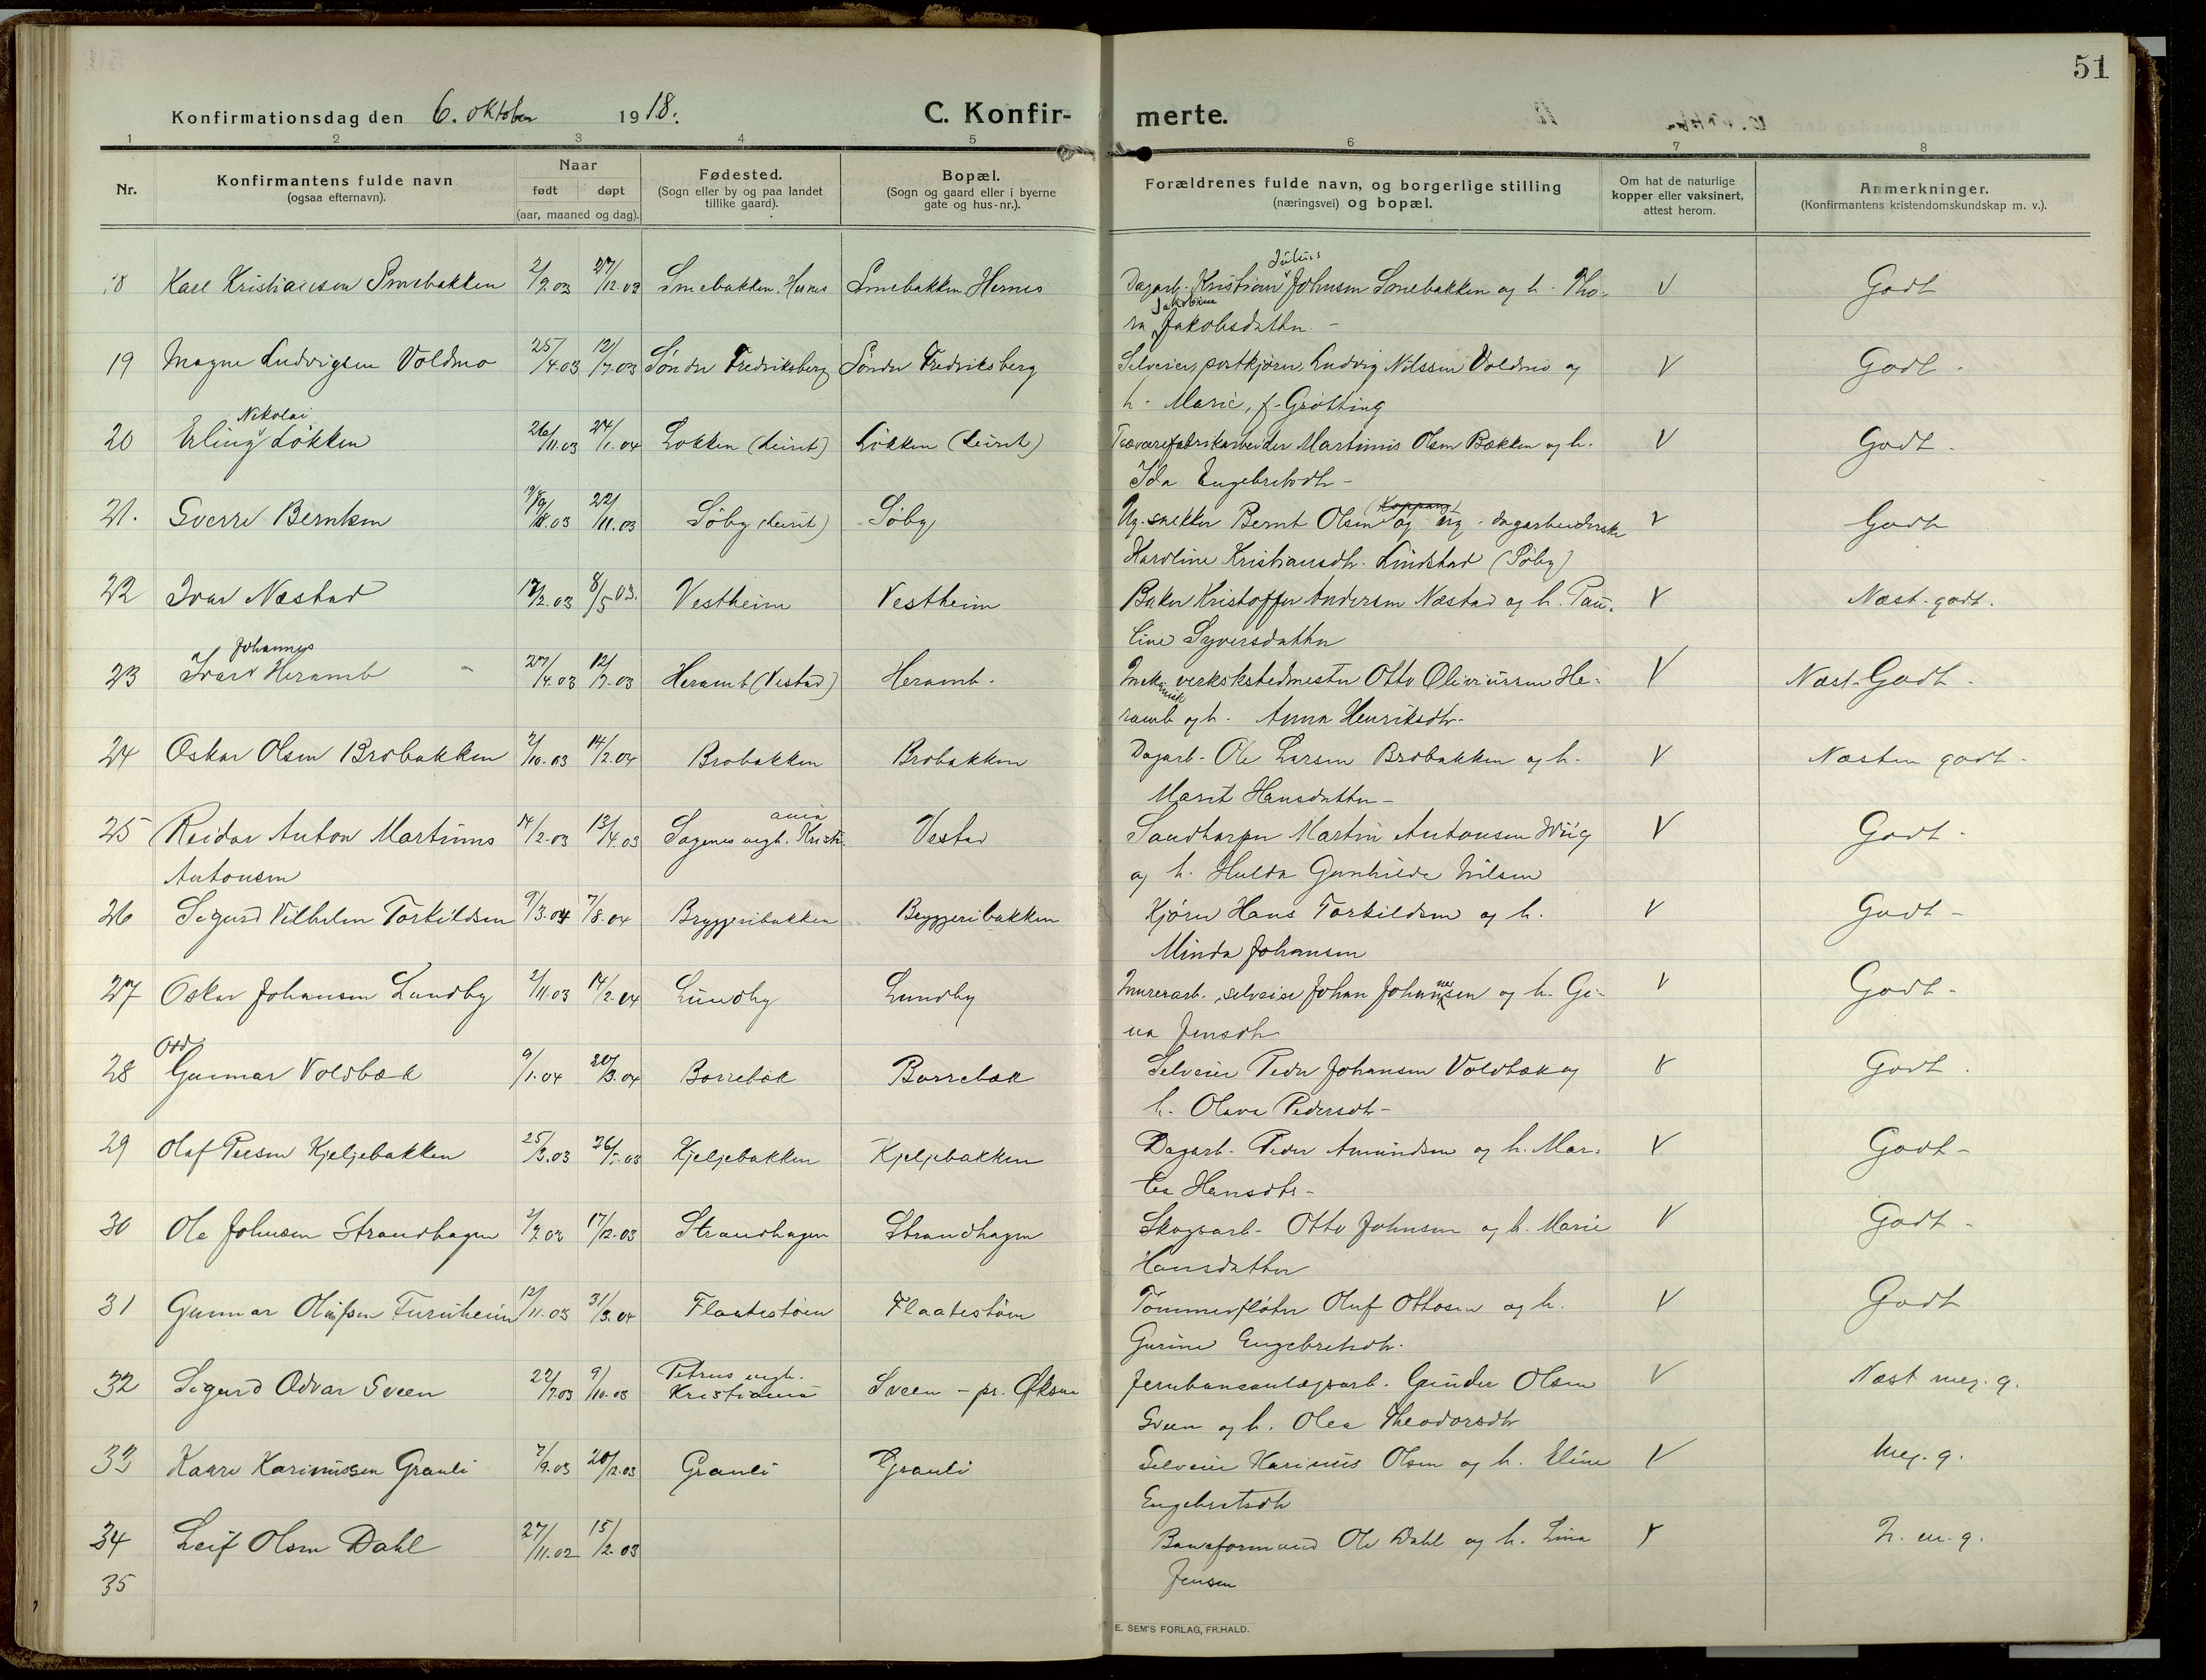 51
Konfirmationsdag den 6. oktober 1918. C. Konfirmerte.
1 2 3 4 5 6 7 8
Nr.
Konfirmantens fulde navn
(ogsaa efternavn).
Naar
født døpt
(aar, maaned og dag).
Fødested.
(Sogn eller by og paa landet
tillike gaard).
Bopæl.
(Sogn og gaard eller i byerne
gate og hus-nr.).
Forældrenes fulde navn, og borgerlige stilling
(næringsvei) og bopæl.
Om hat de naturlige
kopper eller vaksinert,
attest herom.
Anmerkninger.
(Konfirmantens kristendomskundskap m. v.).
Julius
18 Karl Kristiansen Smebakken 2/9.03 27/12.03 Smebakken, Hernes Smebakken Hernes Dagarb. Kristian Johnsen Smebakken og h. Tho- V Godt
Jakobine
ra Jakobsdatter -
19 Magne Ludvigsen Voldmo 25/4.03 12/7.03 Søndre Fredriksberg Søndre Fredriksberg Selveier, postkjører, Ludvig Nilssen Voldmo og V Godt -
h. Marie, f. Grøtting
Nikolai
20 Erling Løkken 26/11.03 24/1.04 Løkken (Leiret) Løkken (Leiret) Trævarefabrikarbeider Martinius Olsen Bækken og h. V Godt -
Ida Engebretsdtr -
(Koppang)
21. Sverre Berntsen 22/11.03 Søby (Leiret) Søby Ug. snekker Bernt Olsen og ug. dagarbeiderske V Godt
Karoline Kristiansdtr. Lindstad (Søby)
22 Ivar Næstad 17/2.03 8/5 03. Vestheim Vestheim Baker Kristoffer Andersen Næstad og h. Pau- V Næst. godt.
line Syversdatter
Johannes
23 Ivar Heramb - 27/4.03 12/7.03 Heramb (Vestad) Heramb. Mekanisk verkstedmester Otto Oliviussen He- V Næst. Godt -
ramb og h. Anna Henriksdtr.
24 Oskar Olsen Brobakken 2/10.03 14/2.04 Brobakken Brobakken Dagarb. Ole Larsen Brobakken og h. V Næsten godt -
Marit Hansdatter -
ania
25 Reidar Anton Martinus 14/2.03 13/4.03 Sagenes mgh. Kristi- Vestad Sandtarper Martin Antonsen Wiig V Godt -
Antonsen og h. Hulda Gunhilde Nilsen
26 Sigurd Vilhelm Torkildsen 9/3.04 7/8.04 Bryggeribakken Bryggeribakken Kjører Hans Torkildsen og h. V Godt -
Minda Johansen
27 Oskar Johansen Lundby 2/11.03 14/2.04 Lundby Lundby Murerarb., selveier Johan Johannessen og h. Gi- V Godt -
na Jensdtr
Odd
28 Gunnar Voldbæk 9/1.04 20/3.04 Borrebæk Borrebæk Selveier Peder Johansen Voldbæk og V Godt .
h. Olava Pedersdtr -
29 Olaf Peersen Kjeljebakken 25/3.03 Kjeljebakken Kjeljebakken Dagarb. Peder Amundsen og h. Mar- V Godt -
tea Hansdtr -
30 Ole Johnsen Strandhagen 2/9.03 17/12.03 Strandhagen Strandhagen Skogsarb. Otto Johnsen og h. Marie V Godt -
Hansdatter
31 Gunnar Olufsen Furuheim 12/11.03 31/3.04 Flaatestøen Flaatestøen Tømmerfløter Oluf Ottosen og h. V Godt
Gurine Engebretsdtr.
32 Sigurd Odvar Sveen 22/7.03 9/10.03 Petrus mgh. Kristiania Sveen - pr. Øksna Jernbaneanlægsarb. Gunder Olsen V Næst meg. g.
Sveen og h. Olea Theodorsdtr
33 Kaare Karinussen Granli 7/9.03 20/12.03 Granli Granli Selveier Karinius Olsen og h. Eline V Meg. g.
Engebretsdtr
34 Leif Olsen Dahl 27/11.02 15/2.03 Baneformand Ole Dahl og h. Lina V N. m. g.
Jensen
35
E. SEM'S FORLAG, FR.HALD.